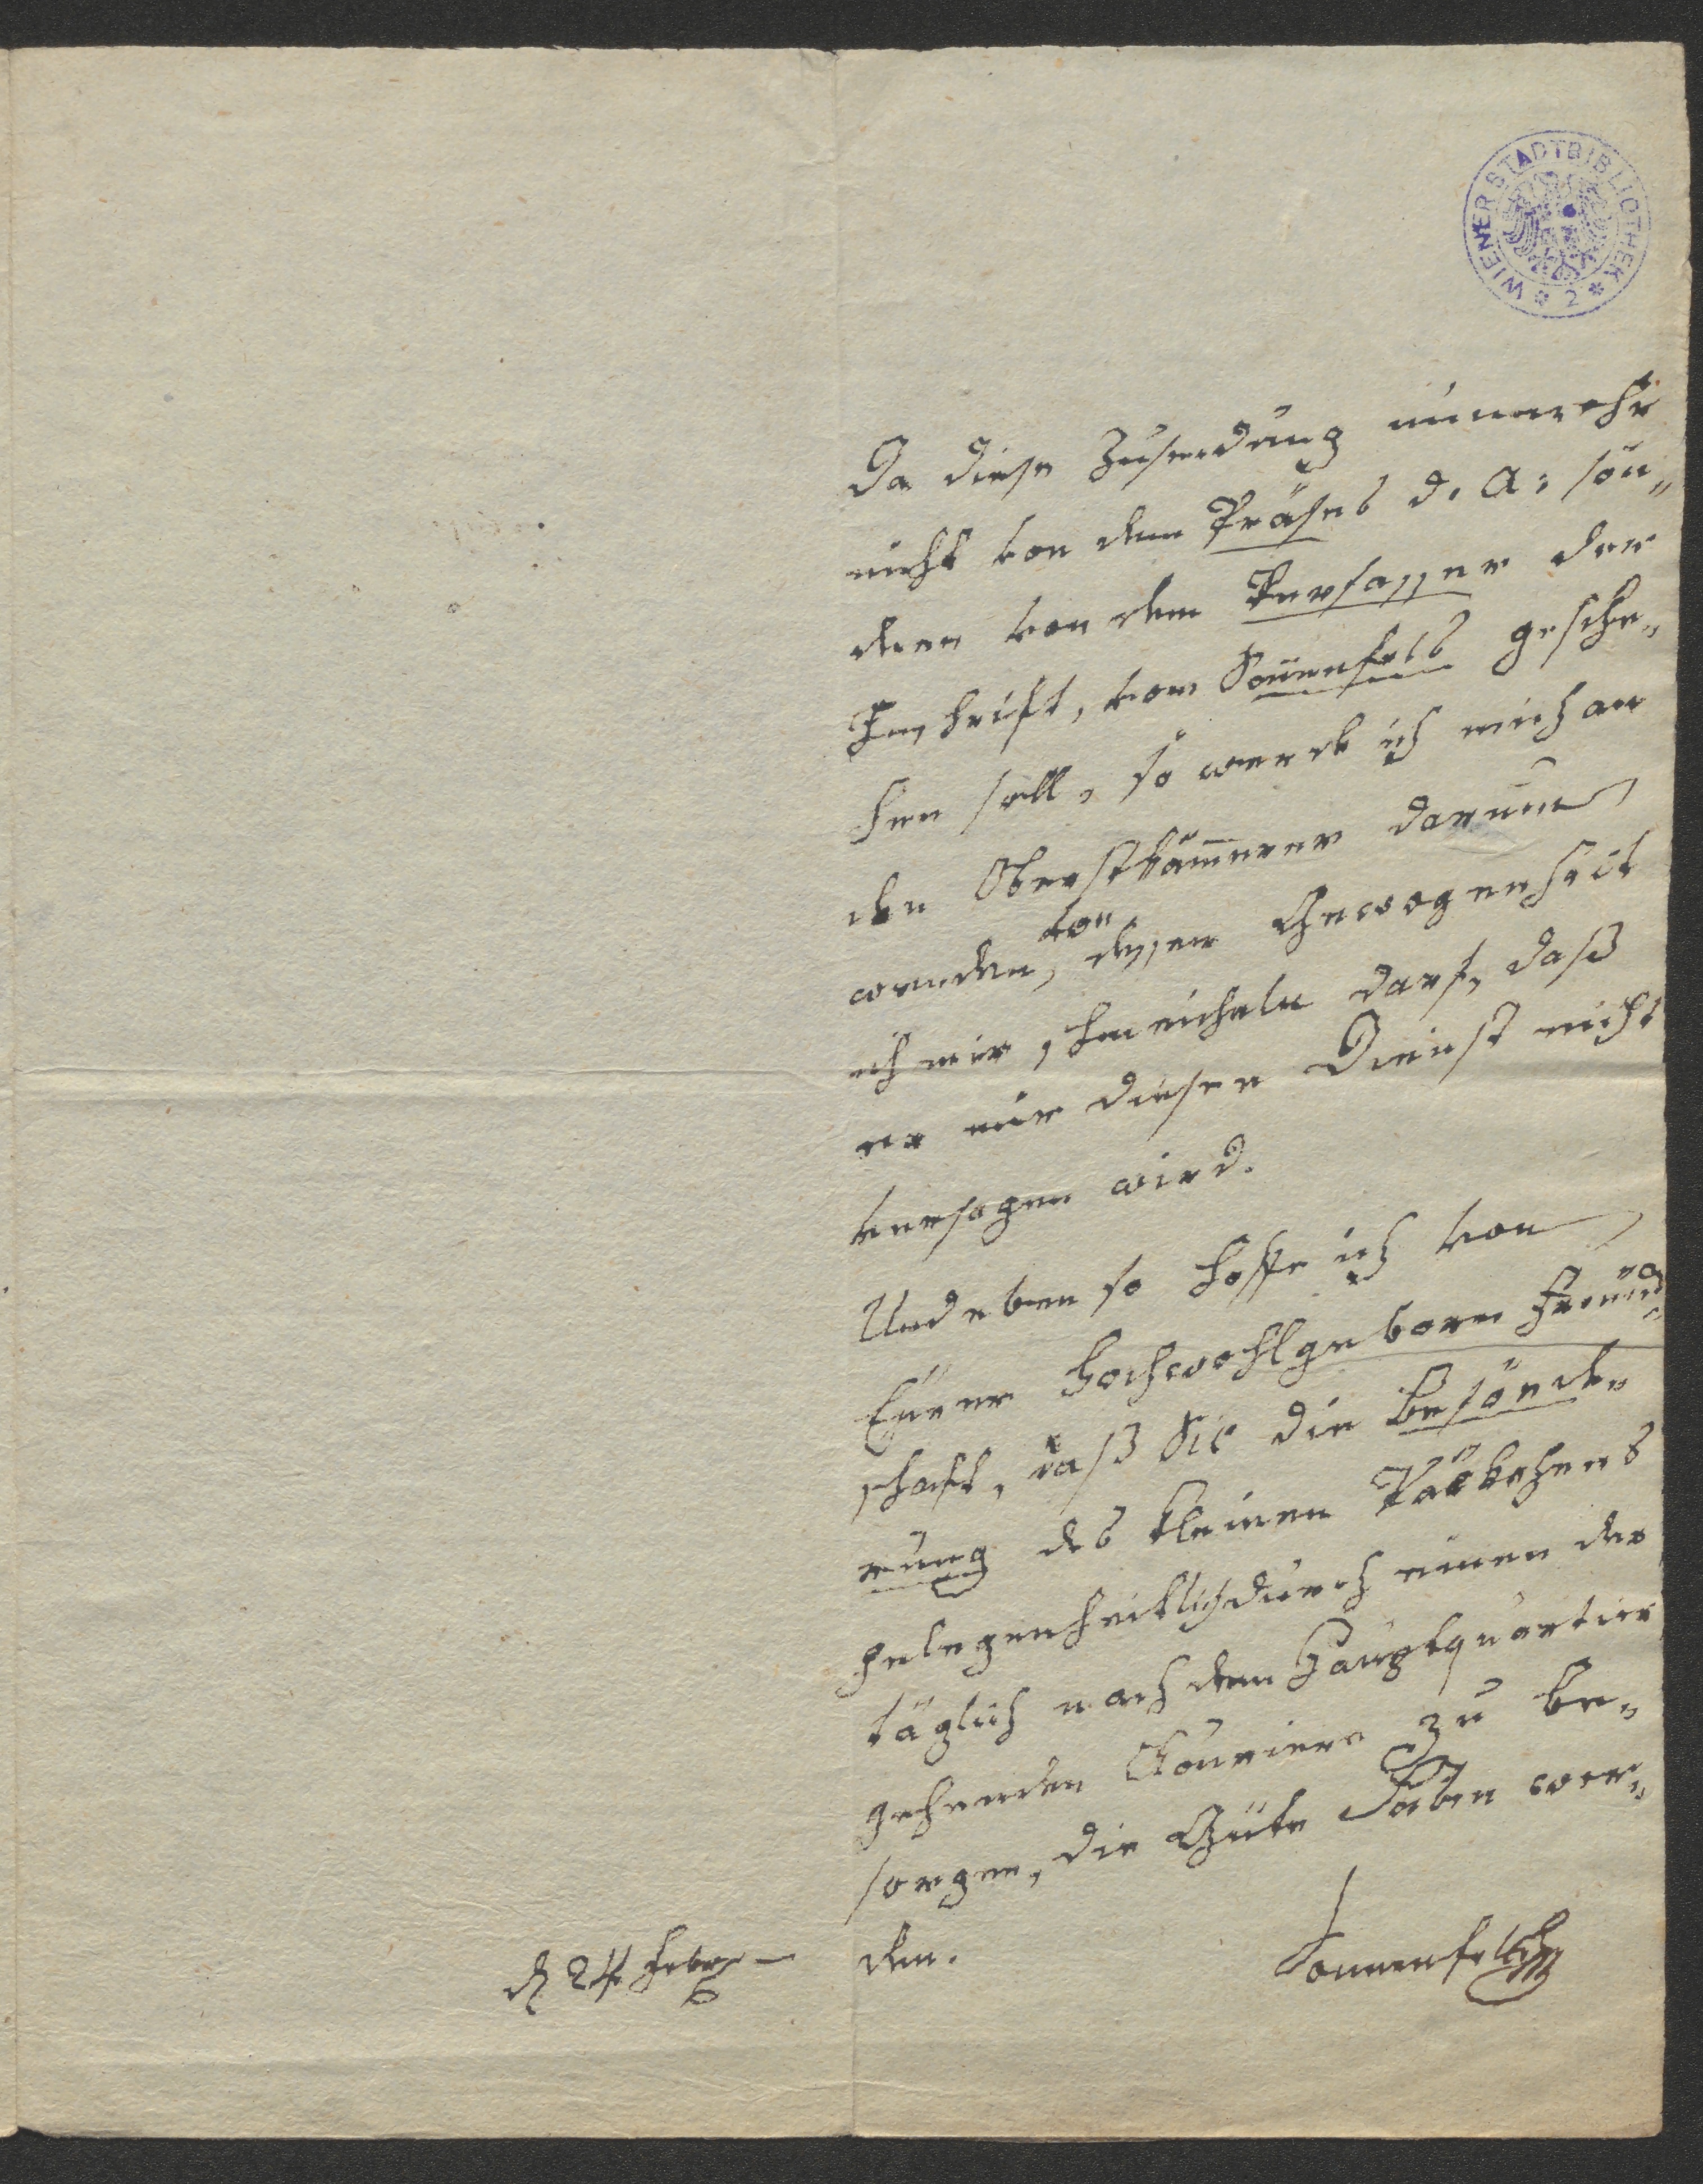 WIENER STADTBIBLIOTHEK * 2 *
Da diese Zusendung nunmehr
nicht von dem Präses d. A: son„
dern von dem Verfasser der
Inschrift, vom Sonnenfels gesche„
hen soll, so werde ich mich an
den Oberstkämmerer darum
wenden, von dessen Gewogenheit
ich mir schmeicheln darf, daß
er mir diesen Dienst nicht
versagen wird.
Und eben so hoffe ich von
Euerer Hochwohlgeborn Freund„
schaft, daß Sie die Besönde„
rung des kleinen Päckchens
gelegenheitlich durch einen der
täglich nach dem Hauptquartier
gehenden Couriere zu be„
sorgen, die Güte haben wer„
den.
d 24 Febr
Sonnenfels